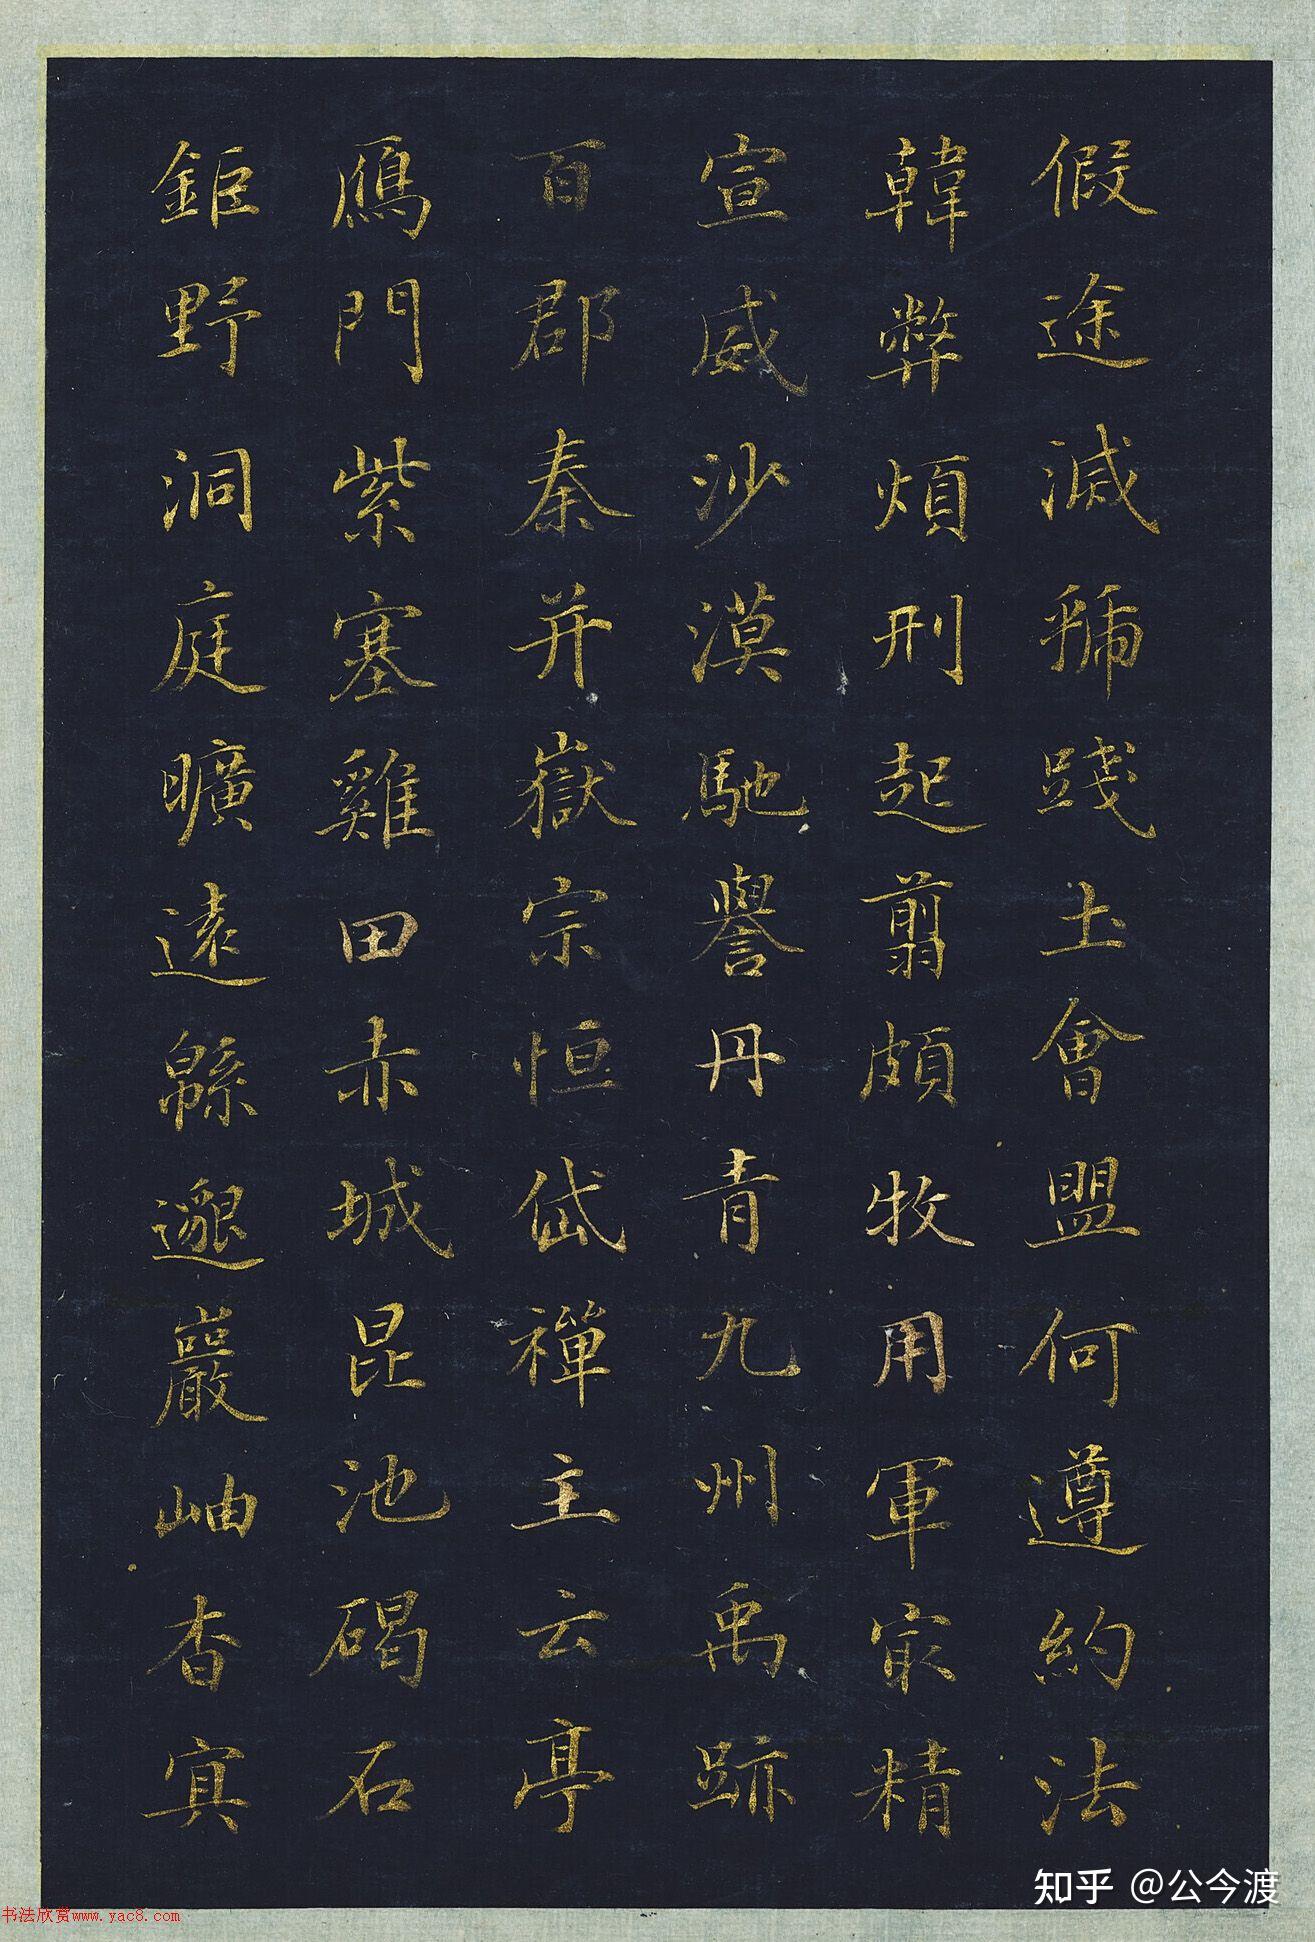 假途滅虢踐土會盟何遵約法
韓弊煩刑起翦頗牧用軍冣精
宣威沙漠馳譽丹青九州禹跡
百郡秦并嶽宗恒岱禪主云亭
鴈門紫塞雞田赤城昆池碣石
鉅野洞庭曠遠緜邈巖岫杳冥
知乎 @公今渡
书法欣赏www.yac8.com